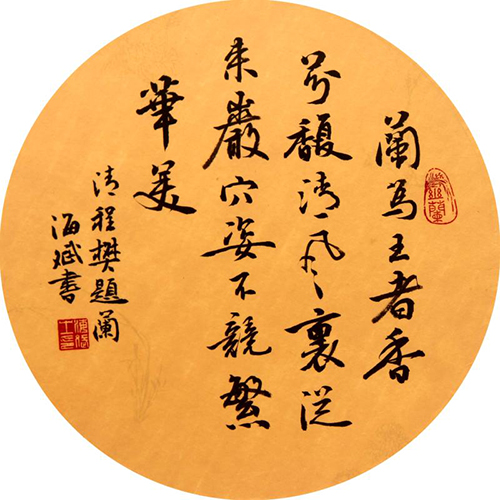 蘭為王者香
芬馥清風裏從
來巖穴姿不競繁
華美
清程樊題蘭
海斌書